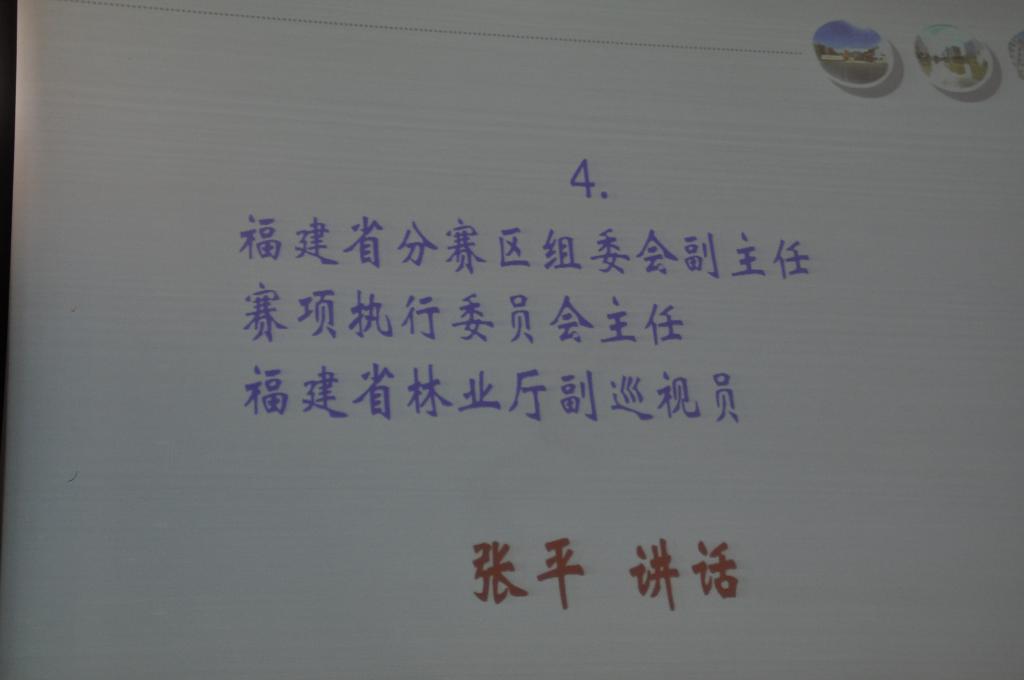 4.
福建省分赛区组委会副主任
赛项执行委员会主任
福建省林业厅副巡视员
张平 讲话